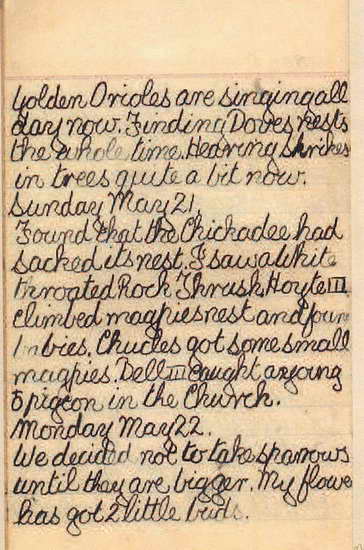 Golden Orioles are singing all
day now. Finding Doves nests
the whole time. Hearing Shrikes
in trees quite a bit now.
Sunday May 21
Found that the Chickadee had
sacked its nest. I saw a White
throated Rock Thrush. Hoyte III
climbed magpies nest and foun
bies. Chucles got some small
magpies. Dell III caught a young
pigeon in the Church.
Monday May 22.
We decided not to take sparrows
until they are bigger. My flowe
has got 2 little buds.